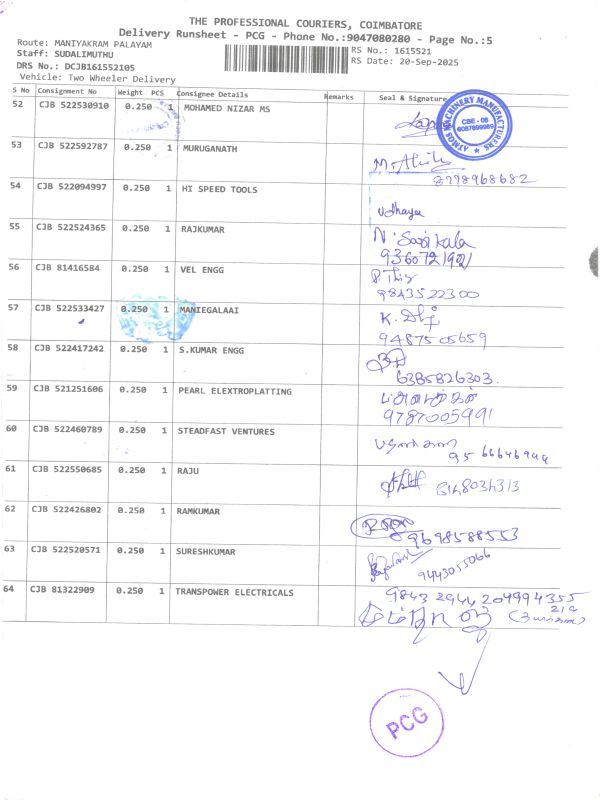 THE PROFESSIONAL COURIERS, COIMBATORE
Delivery Runsheet - PCG - Phone No.:9047080280 - Page No.:5
Route: MANIYAKRAM PALAYAM
RS No.: 1615521
Staff: SUDALIMUTHU
RS Date: 20-Sep-2025
DRS No.: DCJB161552105
Vehicle: Two Wheeler Delivery
S No Consignment No Weight PCS Consignee Details Remarks Seal & Signature
52 CJB 522530910 0.250 1 MOHAMED NIZAR MS
AYMOS MACHINERY MANUFACTURERS
CBE - 06
53 CJB 522592787 0.250 1 MURUGANATH
8778968682
54 CJB 522094997 0.250 1 HI SPEED TOOLS
Udhaya
55 CJB 522524365 0.250 1 RAJKUMAR
N. Sasi kala
9360721921
56 CJB 81416584 0.250 1 VEL ENGG
9843522300
57 CJB 522533427 0.250 1 MANIEGALAAI
9487505659
58 CJB 522417242 0.250 1 S.KUMAR ENGG
6385826303.
59 CJB 521251606 0.250 1 PEARL ELEXTROPLATTING
9787005991
60 CJB 522460789 0.250 1 STEADFAST VENTURES
61 CJB 522550685 0.250 1 RAJU
62 CJB 522426802 0.250 1 RAMKUMAR
9698588553
63 CJB 522520571 0.250 1 SURESHKUMAR
9443055066
64 CJB 81322909 0.250 1 TRANSPOWER ELECTRICALS
PCG